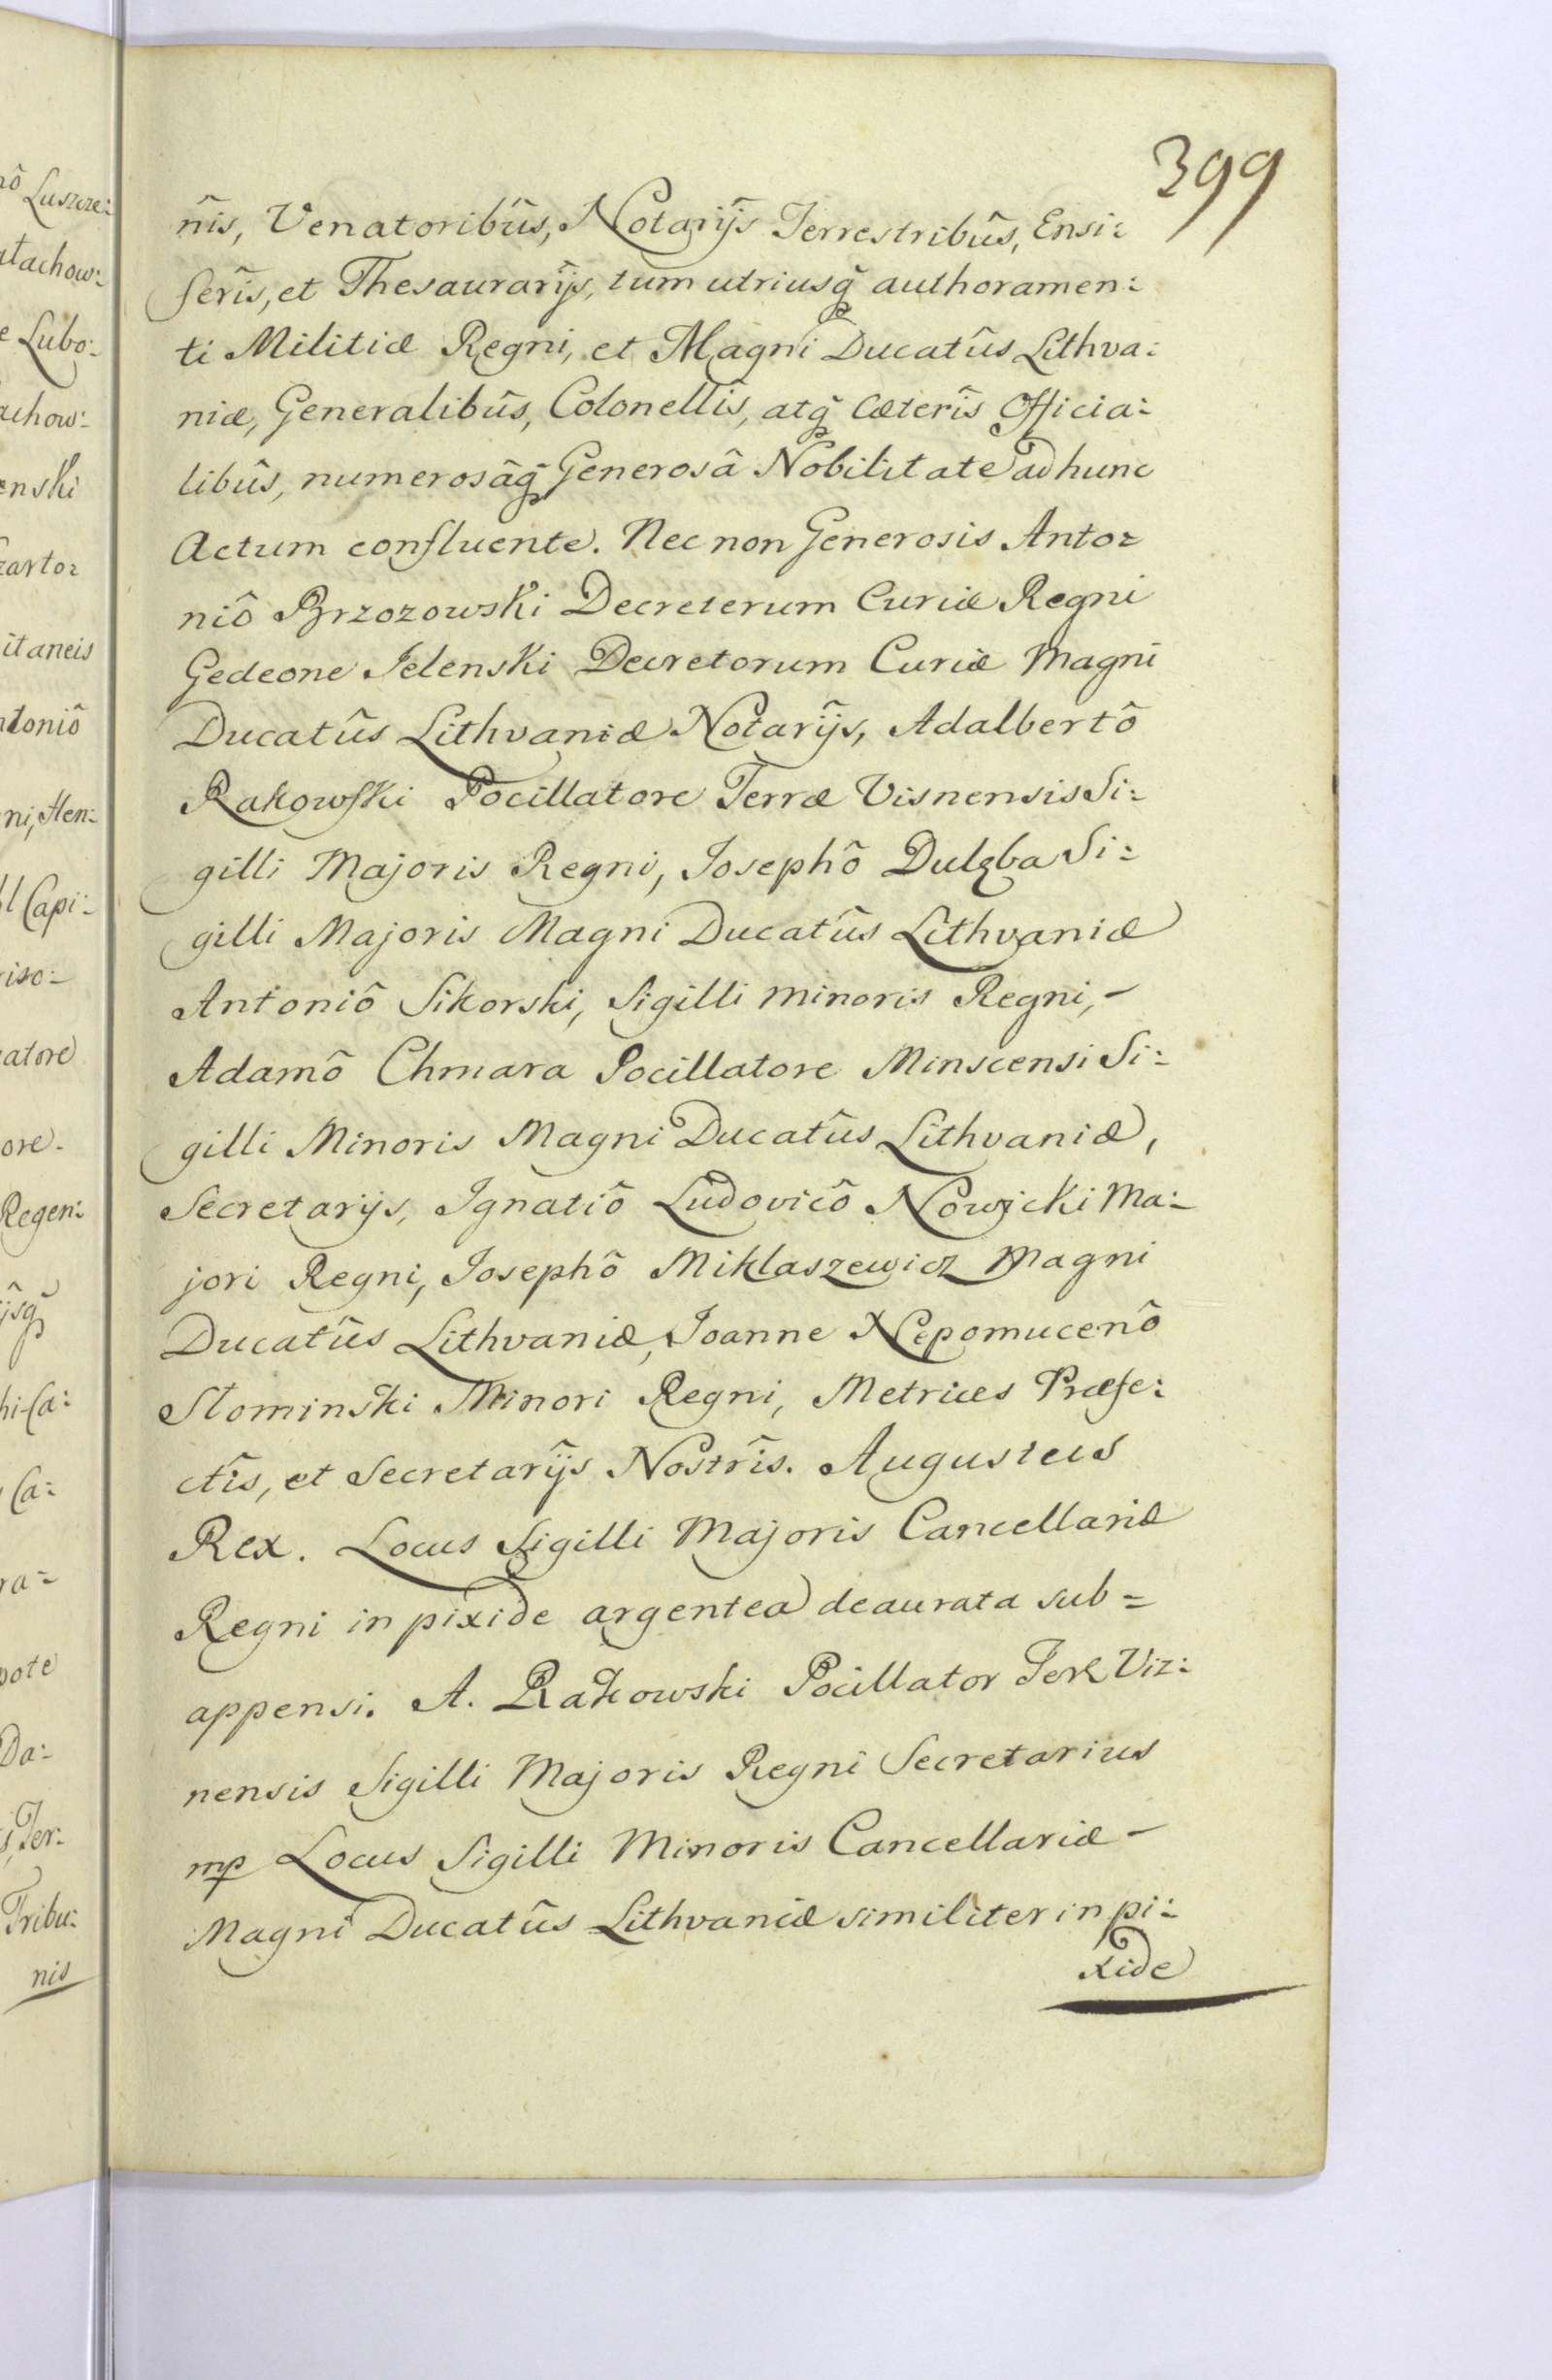 399
nîs, Venatoribûs, Notarijs Terrestribûs, Ensi:
ferîs, et Thesaurarijs, tum utriusq̃ authoramen:
ti Militiæ Regni, et Magni Ducatûs Lithva:
niæ, Generalibûs, Colonellîs, atq̃ Cæterîs Officia:
libûs, numerosâq̃ Generosâ Nobilitate ad hunc
Actum confluente. Nec non Generosis Anto:
niô Brzozowski Decreterum Curiæ Regni
Gedeone Jelenski Decretorum Curiæ Magni
Ducatûs Lithvaniæ Notarijs, Adalbertô
Rakowski Pocillatore Terræ Visnensis Si:
gilli Majoris Regni, Josephô Dulęba Si:
gilli Majoris Magni Ducatûs Lithvaniæ
Antoniô Sikorski, Sigilli minoris Regni, -
Adamô Chmara Pocillatore Minscensi Si:
gilli Minoris Magni Ducatûs Lithvaniæ,
Secretarijs, Ignatiô Ludovicô Nowicki Ma:
jori Regni, Josephô Miklaszewicz Magni
Ducatûs Lithvaniæ, Joanne Nepomucenô
Słominski Minori Regni, Metrices Præfe:
ctîs, et Secretarijs Nostrîs. Augustus
Rex. Locus Sigilli Majoris Cancellariæ
Regni in pixide argentea deaurata sub=
appensi. A. Rakowski Pocillator Ter Viz:
nensis Sigilli Majoris Regni Secretarius
mp Locus Sigilli Minoris Cancellariæ -
Magni Ducatûs Lithvaniæ similiter in pi:
xide